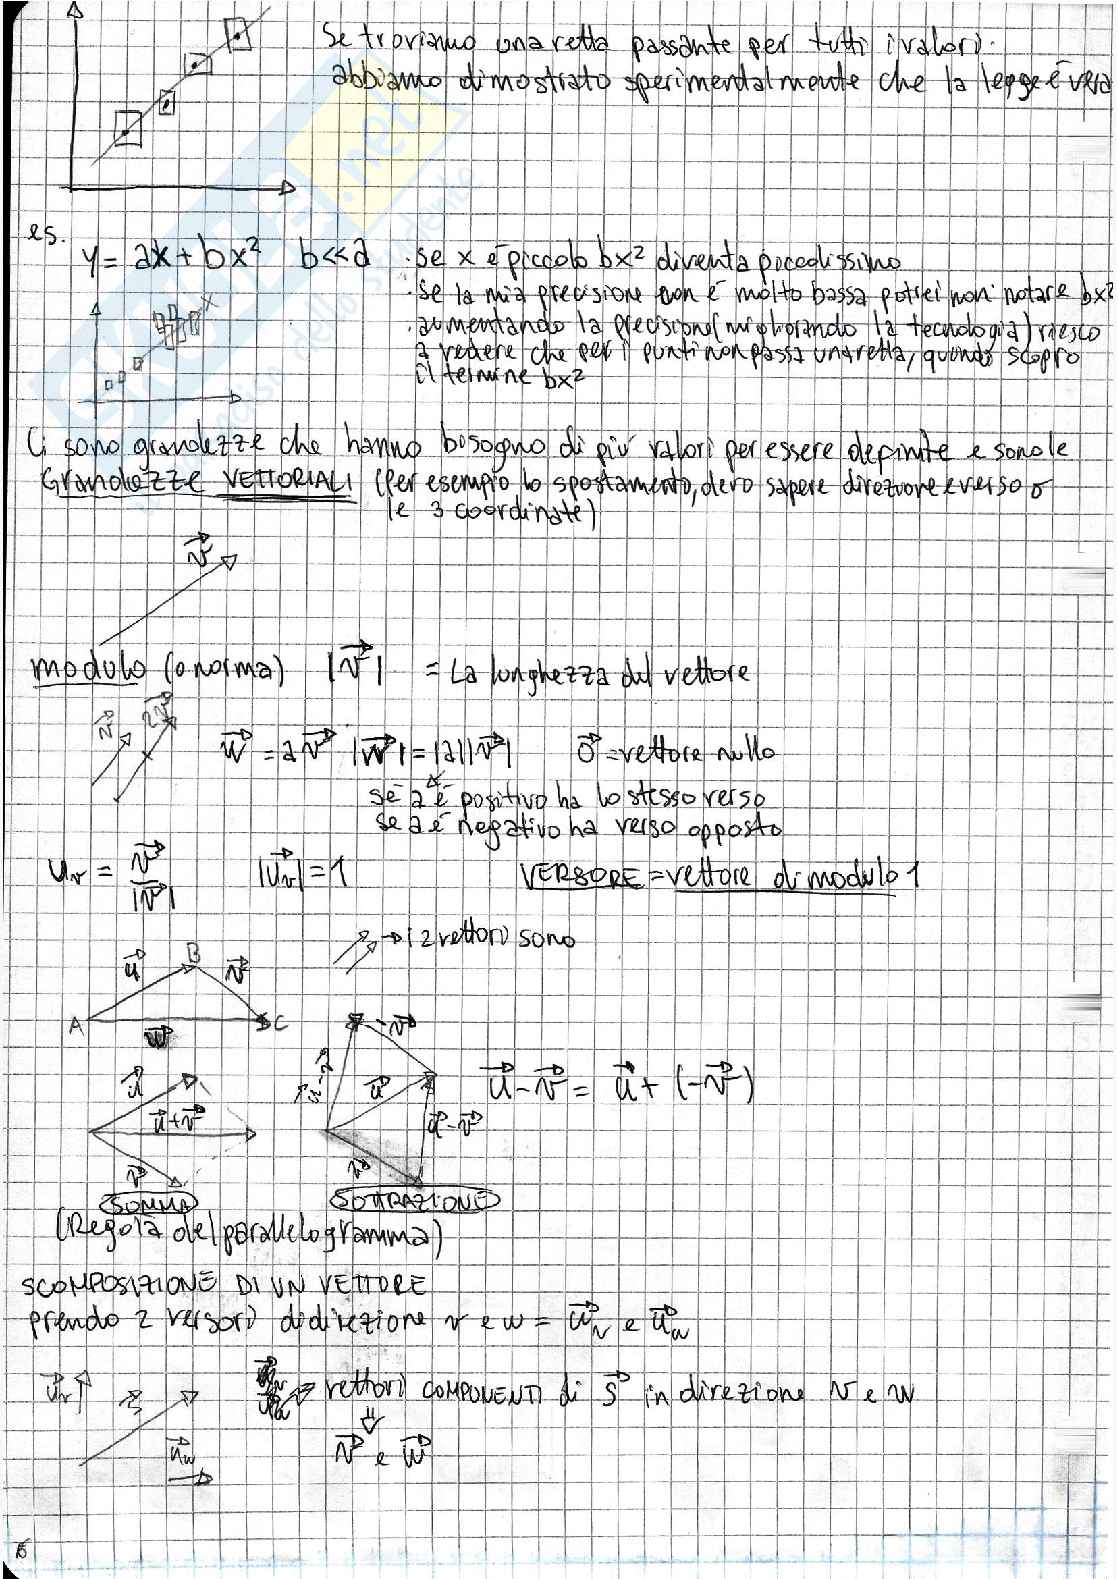 Se troviamo una retta passante per tutti i valori.
abbiamo dimostrato sperimentalmente che la legge è vera
es.
y = ax + bx² b<<a · se x è piccolo bx² diventa piccolissimo
· se la mia precisione non è molto bassa potrei non notare bx²
· aumentando la precisione (migliorando la tecnologia) riesco
a vedere che per i punti non passa una retta, quando scopro
il termine bx²
Ci sono grandezze che hanno bisogno di più valori per essere definite e sono le
Grandezze VETTORIALI (Per esempio lo spostamento, devo sapere direzione e verso o
le 3 coordinate)
v⃗
modulo (o norma) |v⃗| = La lunghezza del vettore
v⃗ 2v⃗
w⃗ = a v⃗ |w⃗| = |a||v⃗| 0⃗ = vettore nullo
se a è positivo ha lo stesso verso
se a è negativo ha verso opposto
u_v = v⃗/|v⃗| |u⃗_v| = 1 VERSORE = vettore di modulo 1
→ i 2 vettori sono
u⃗ B v⃗
A w⃗ C
-v⃗
u⃗ u⃗-v⃗ u⃗ u⃗ - v⃗ = u⃗ + (-v⃗)
u⃗+v⃗ u⃗-v⃗
v⃗ v⃗
SOMMA SOTTRAZIONE
(Regola del parallelogramma)
SCOMPOSIZIONE DI UN VETTORE
prendo 2 versori di direzione v e w = u⃗_v e u⃗_w
u⃗_v s⃗ vettori COMPONENTI di s⃗ in direzione v e w
u⃗_w v⃗ e w⃗